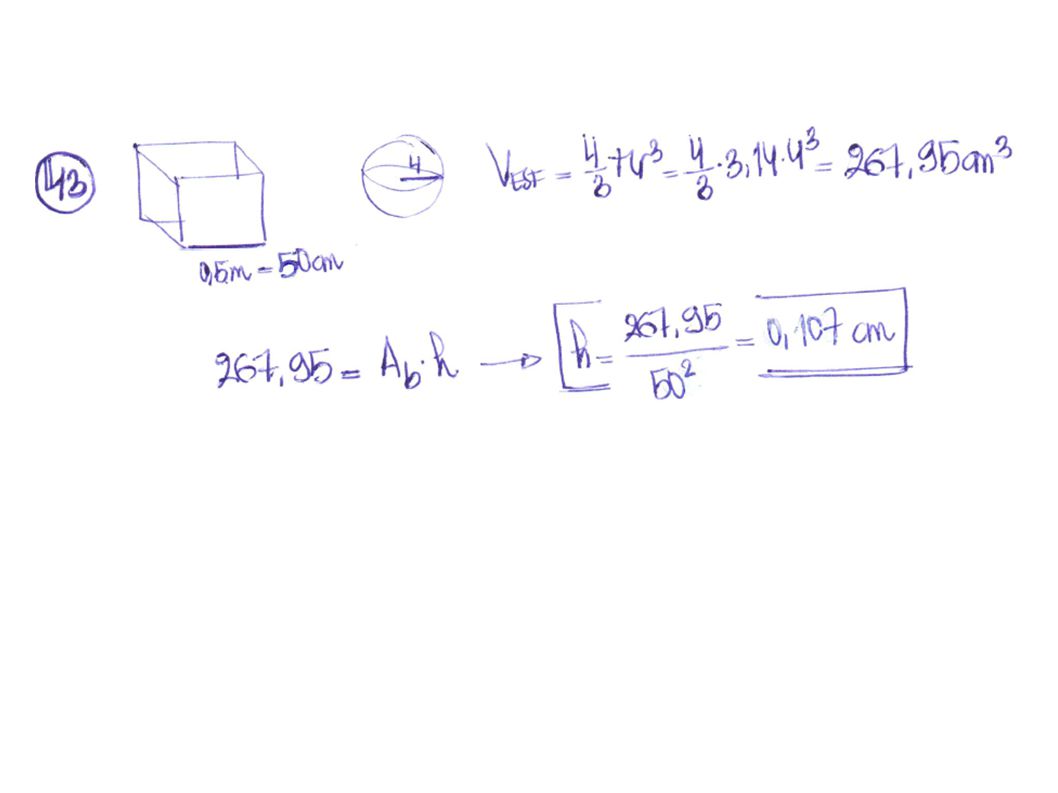 43
4
V_EST = 4/3 π r³ = 4/3 · 3,14 · 4³ = 267,95 cm³
0,5m = 50 cm
267,95 = A_b · h → h = 267,95 / 50² = 0,107 cm